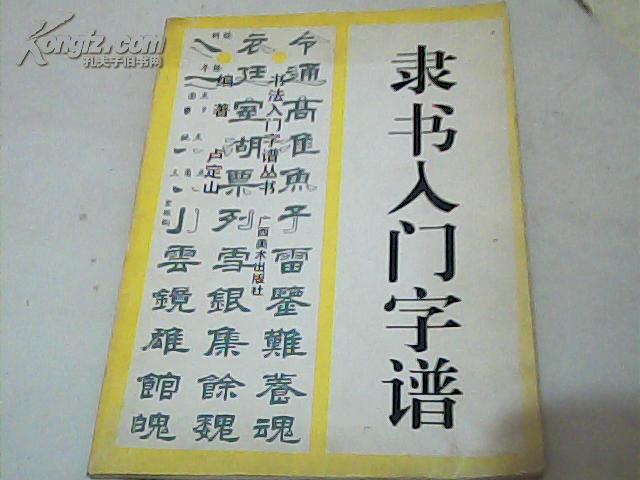 Kongfz.com
孔夫子旧书网
隶书入门字谱
书法入门字谱丛书
编著 卢定山
广西美术出版社
今通高淮魚予雷鑒難養魂
衣廷室湖票列雪銀集餘魏
雲鏡雄館魄